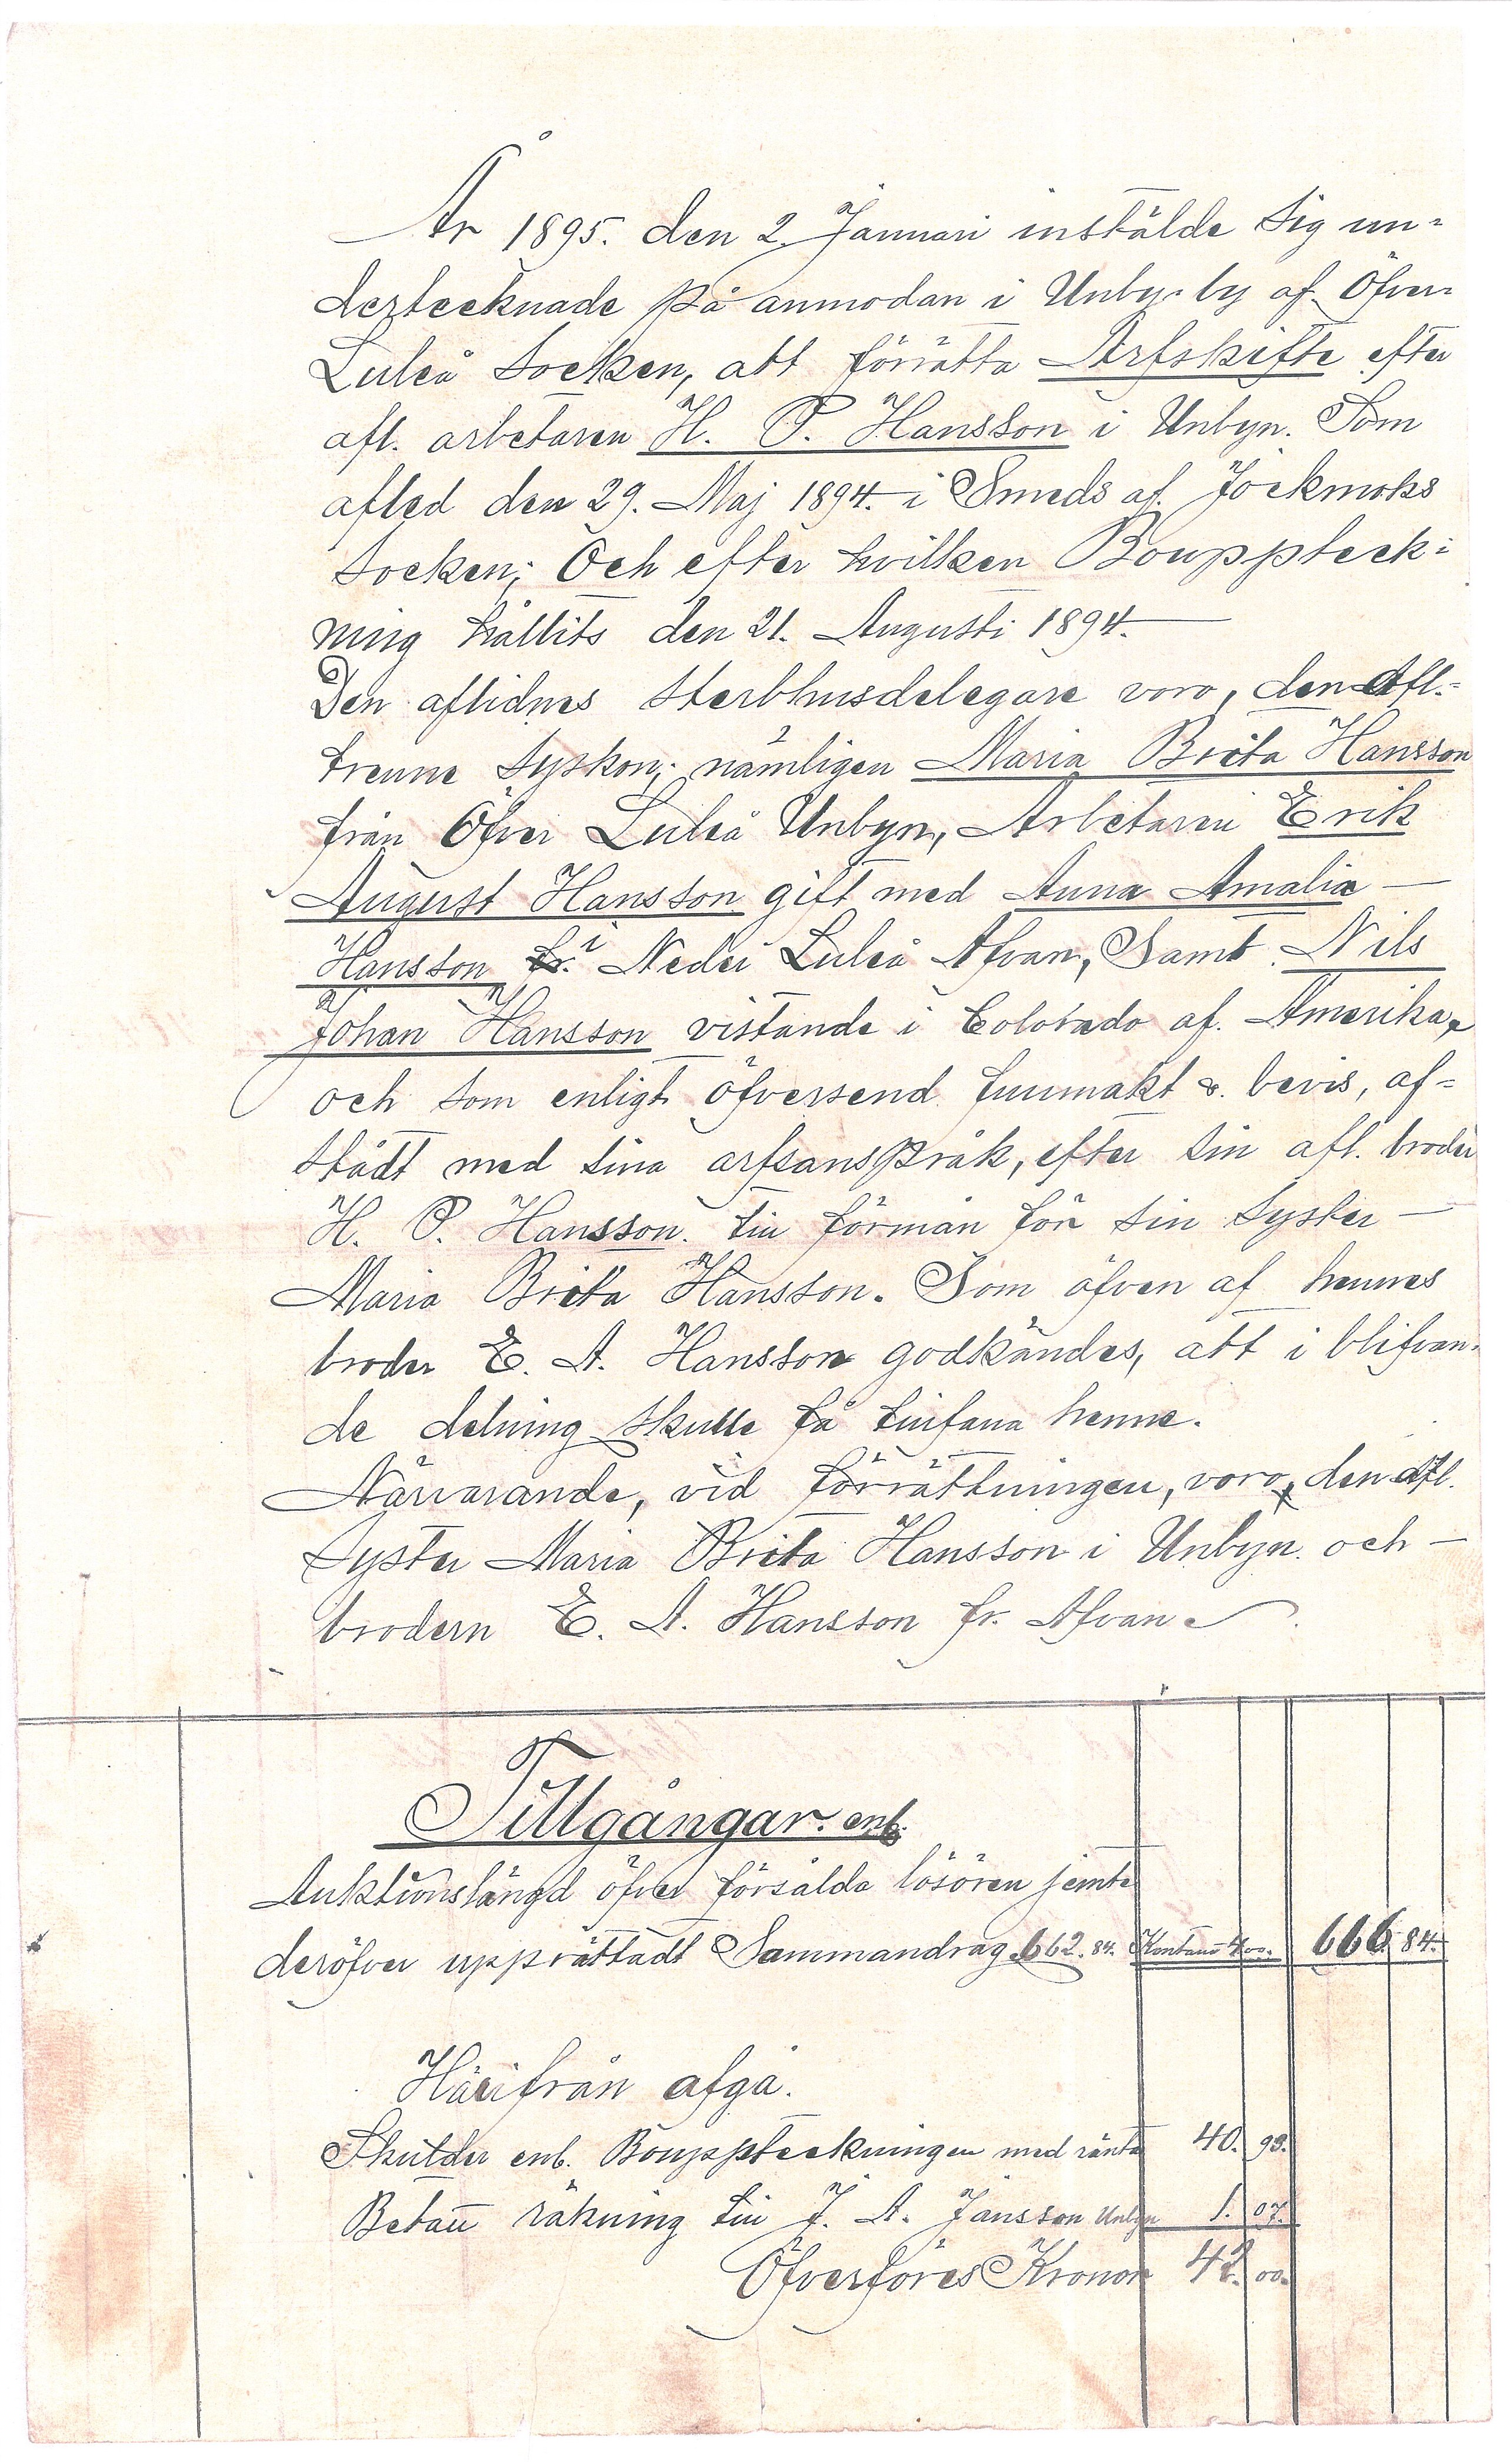 År 1895. den 2. Januari instälde sig un=
dertecknade på anmodan i Unbyn by af. Öfver
Luleå Socken, att förrätta Arfskifte efter
afl. arbetaren H. P. Hansson i Unbyn. Som
afled den 29. Maj 1894. i Smeds af. Jockmoks
Socken; Och efter hvilken Bouppteck=
ning hållits den 21. Augusti 1894.
Den aflidnes Sterbhusdelegare voro, den Afl.=
trenne Syskon; nämligen Maria Brita Hansson
från Öfver Luleå Unbyn, Arbetaren Erik
August Hansson gift med Anna Amalia
Hansson fr. i Neder Luleå Afvan, Samt Nils
Johan Hansson vistande i Colorado af. Amerika,
och som enligt öfversend fullmakt &. bevis, af=
stådt med sina arfsanspråk, efter sin afl. broder
H. P. Hansson. till förmån för sin Syster
Maria Brita Hansson. Som äfven af hennes
broder E. A. Hansson godkändes, att i blifvan=
de delning skulle få tillfalla henne.
Närvarande, vid förrättningen, voro, den afl.
Syster Maria Brita Hansson i Unbyn. och
brodern E. A. Hansson fr. Afvan
Tillgångar. enl.
Auktionslängd öfver försålda lösören jemte
deröfver upprättadt Sammandrag 662. 84. Kontant 4.00. 666. 84.
Härifrån afgå.
Skulder enl. Bouppteckningen med ränta 40. 93.
Betalt räkning till J. A. Jansson Unbyn 1. 07.
Öfverföres Kronor 42. 00.